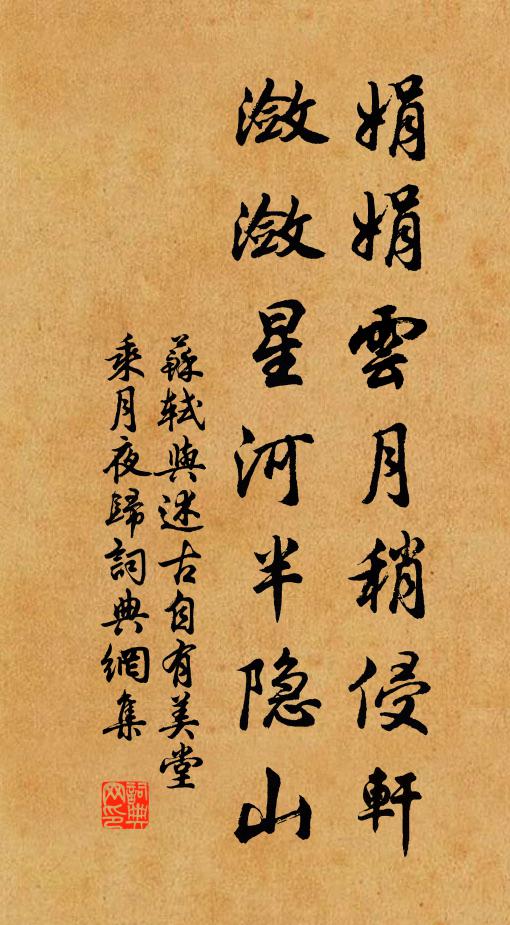 娟娟雲月稍侵軒
瀲瀲星河半隐山
蘇軾與述古自有美堂
乘月夜歸詞典網集
詞典
网印